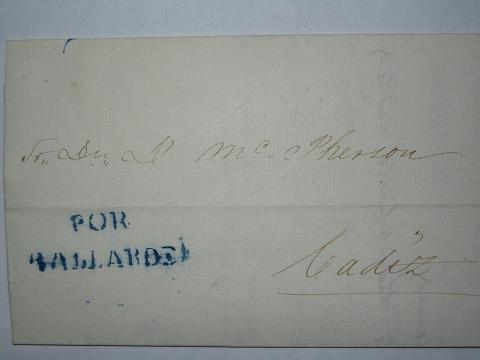 Sr,, Dn,, D Mc. Pherson
POR
GALLARDE
Cadiz